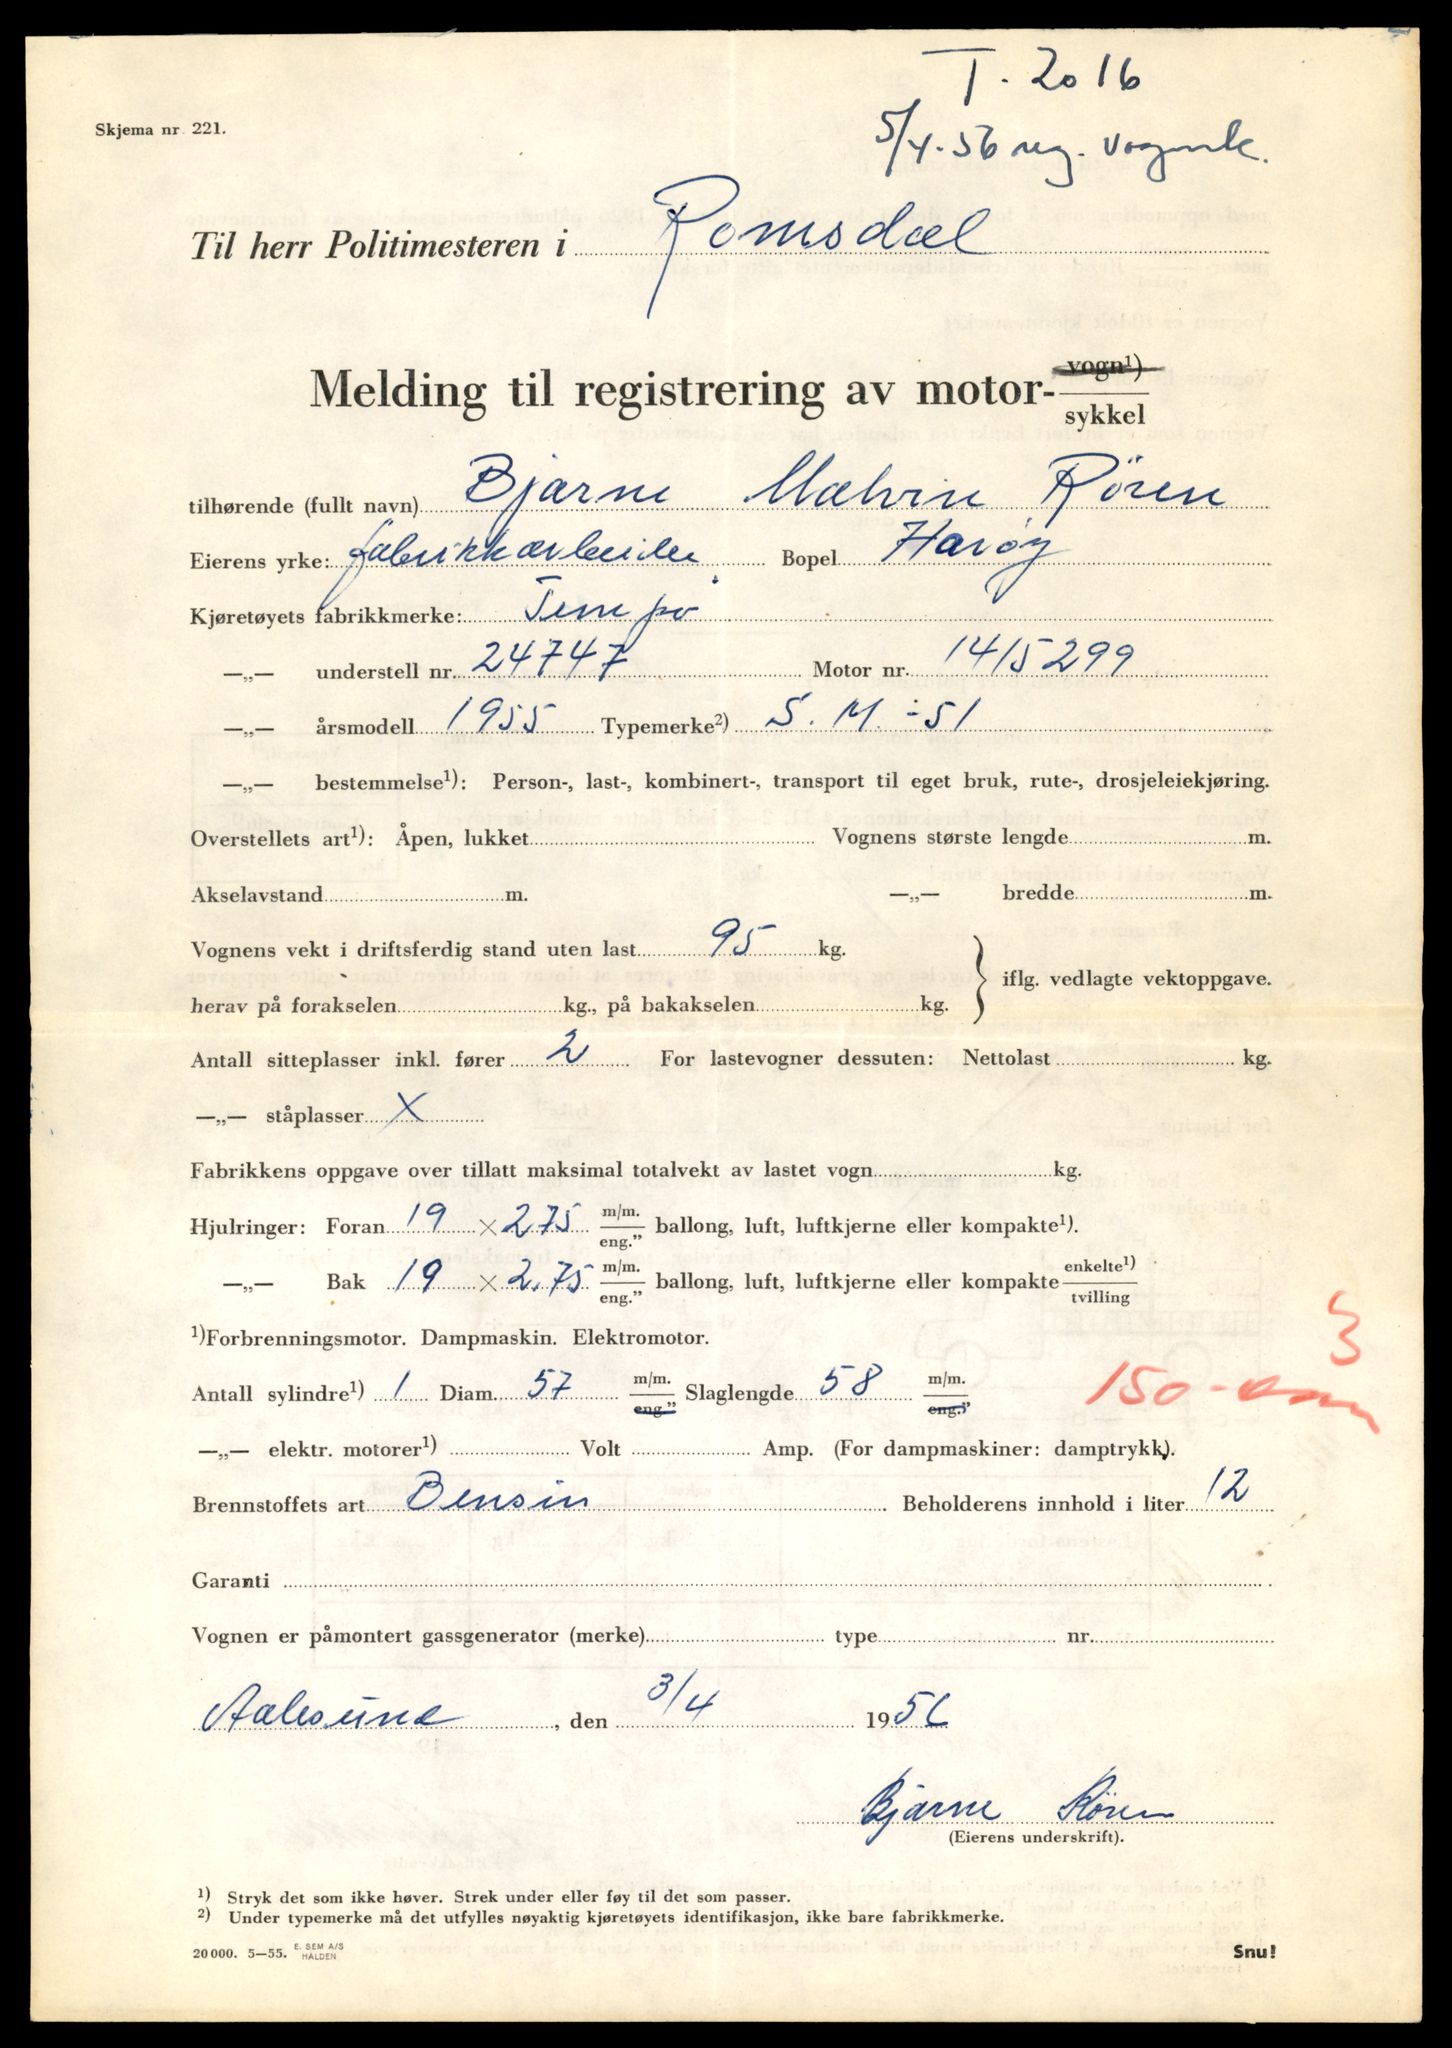 T. 2016
Skjema nr. 221.
5/4-56 reg. vognk.
Til herr Politimesteren i Romsdal
Melding til registrering av motor- vogn¹) sykkel
tilhørende (fullt navn) Bjarne Malvin Rören
Eierens yrke: fabrikkarbeider Bopel Harøy
Kjøretøyets fabrikkmerke: Tempo
—„— understell nr. 24747 Motor nr. 1415299
—„— årsmodell 1955 Typemerke²) S. M. ÷ 51
—„— bestemmelse¹): Person-, last-, kombinert-, transport til eget bruk, rute-, drosjeleiekjøring.
Overstellets art¹): Åpen, lukket Vognens største lengde m.
Akselavstand m. —„— bredde m.
Vognens vekt i driftsferdig stand uten last 95 kg.
iflg. vedlagte vektoppgave.
herav på forakselen kg., på bakakselen kg.
Antall sitteplasser inkl. fører 2 For lastevogner dessuten: Nettolast kg.
—„— ståplasser X
Fabrikkens oppgave over tillatt maksimal totalvekt av lastet vogn kg.
Hjulringer: Foran 19 × 2.75 m/m. eng." ballong, luft, luftkjerne eller kompakte¹).
—„— Bak 19 × 2.75 m/m. eng." ballong, luft, luftkjerne eller kompakte enkelte¹) tvilling
¹)Forbrenningsmotor. Dampmaskin. Elektromotor.
Antall sylindre¹) 1 Diam. 57 m/m. eng." Slaglengde 58 m/m. eng." 150 - ccm 3
—„— elektr. motorer¹) Volt Amp. (For dampmaskiner: damptrykk).
Brennstoffets art Bensin Beholderens innhold i liter 12
Garanti
Vognen er påmontert gassgenerator (merke) type nr.
Aalesund, den 3/4 1956
Bjarne Rören
(Eierens underskrift).
¹) Stryk det som ikke høver. Strek under eller føy til det som passer.
²) Under typemerke må det utfylles nøyaktig kjøretøyets identifikasjon, ikke bare fabrikkmerke.
20000. 5—55. E. SEM A/S HALDEN
Snu!